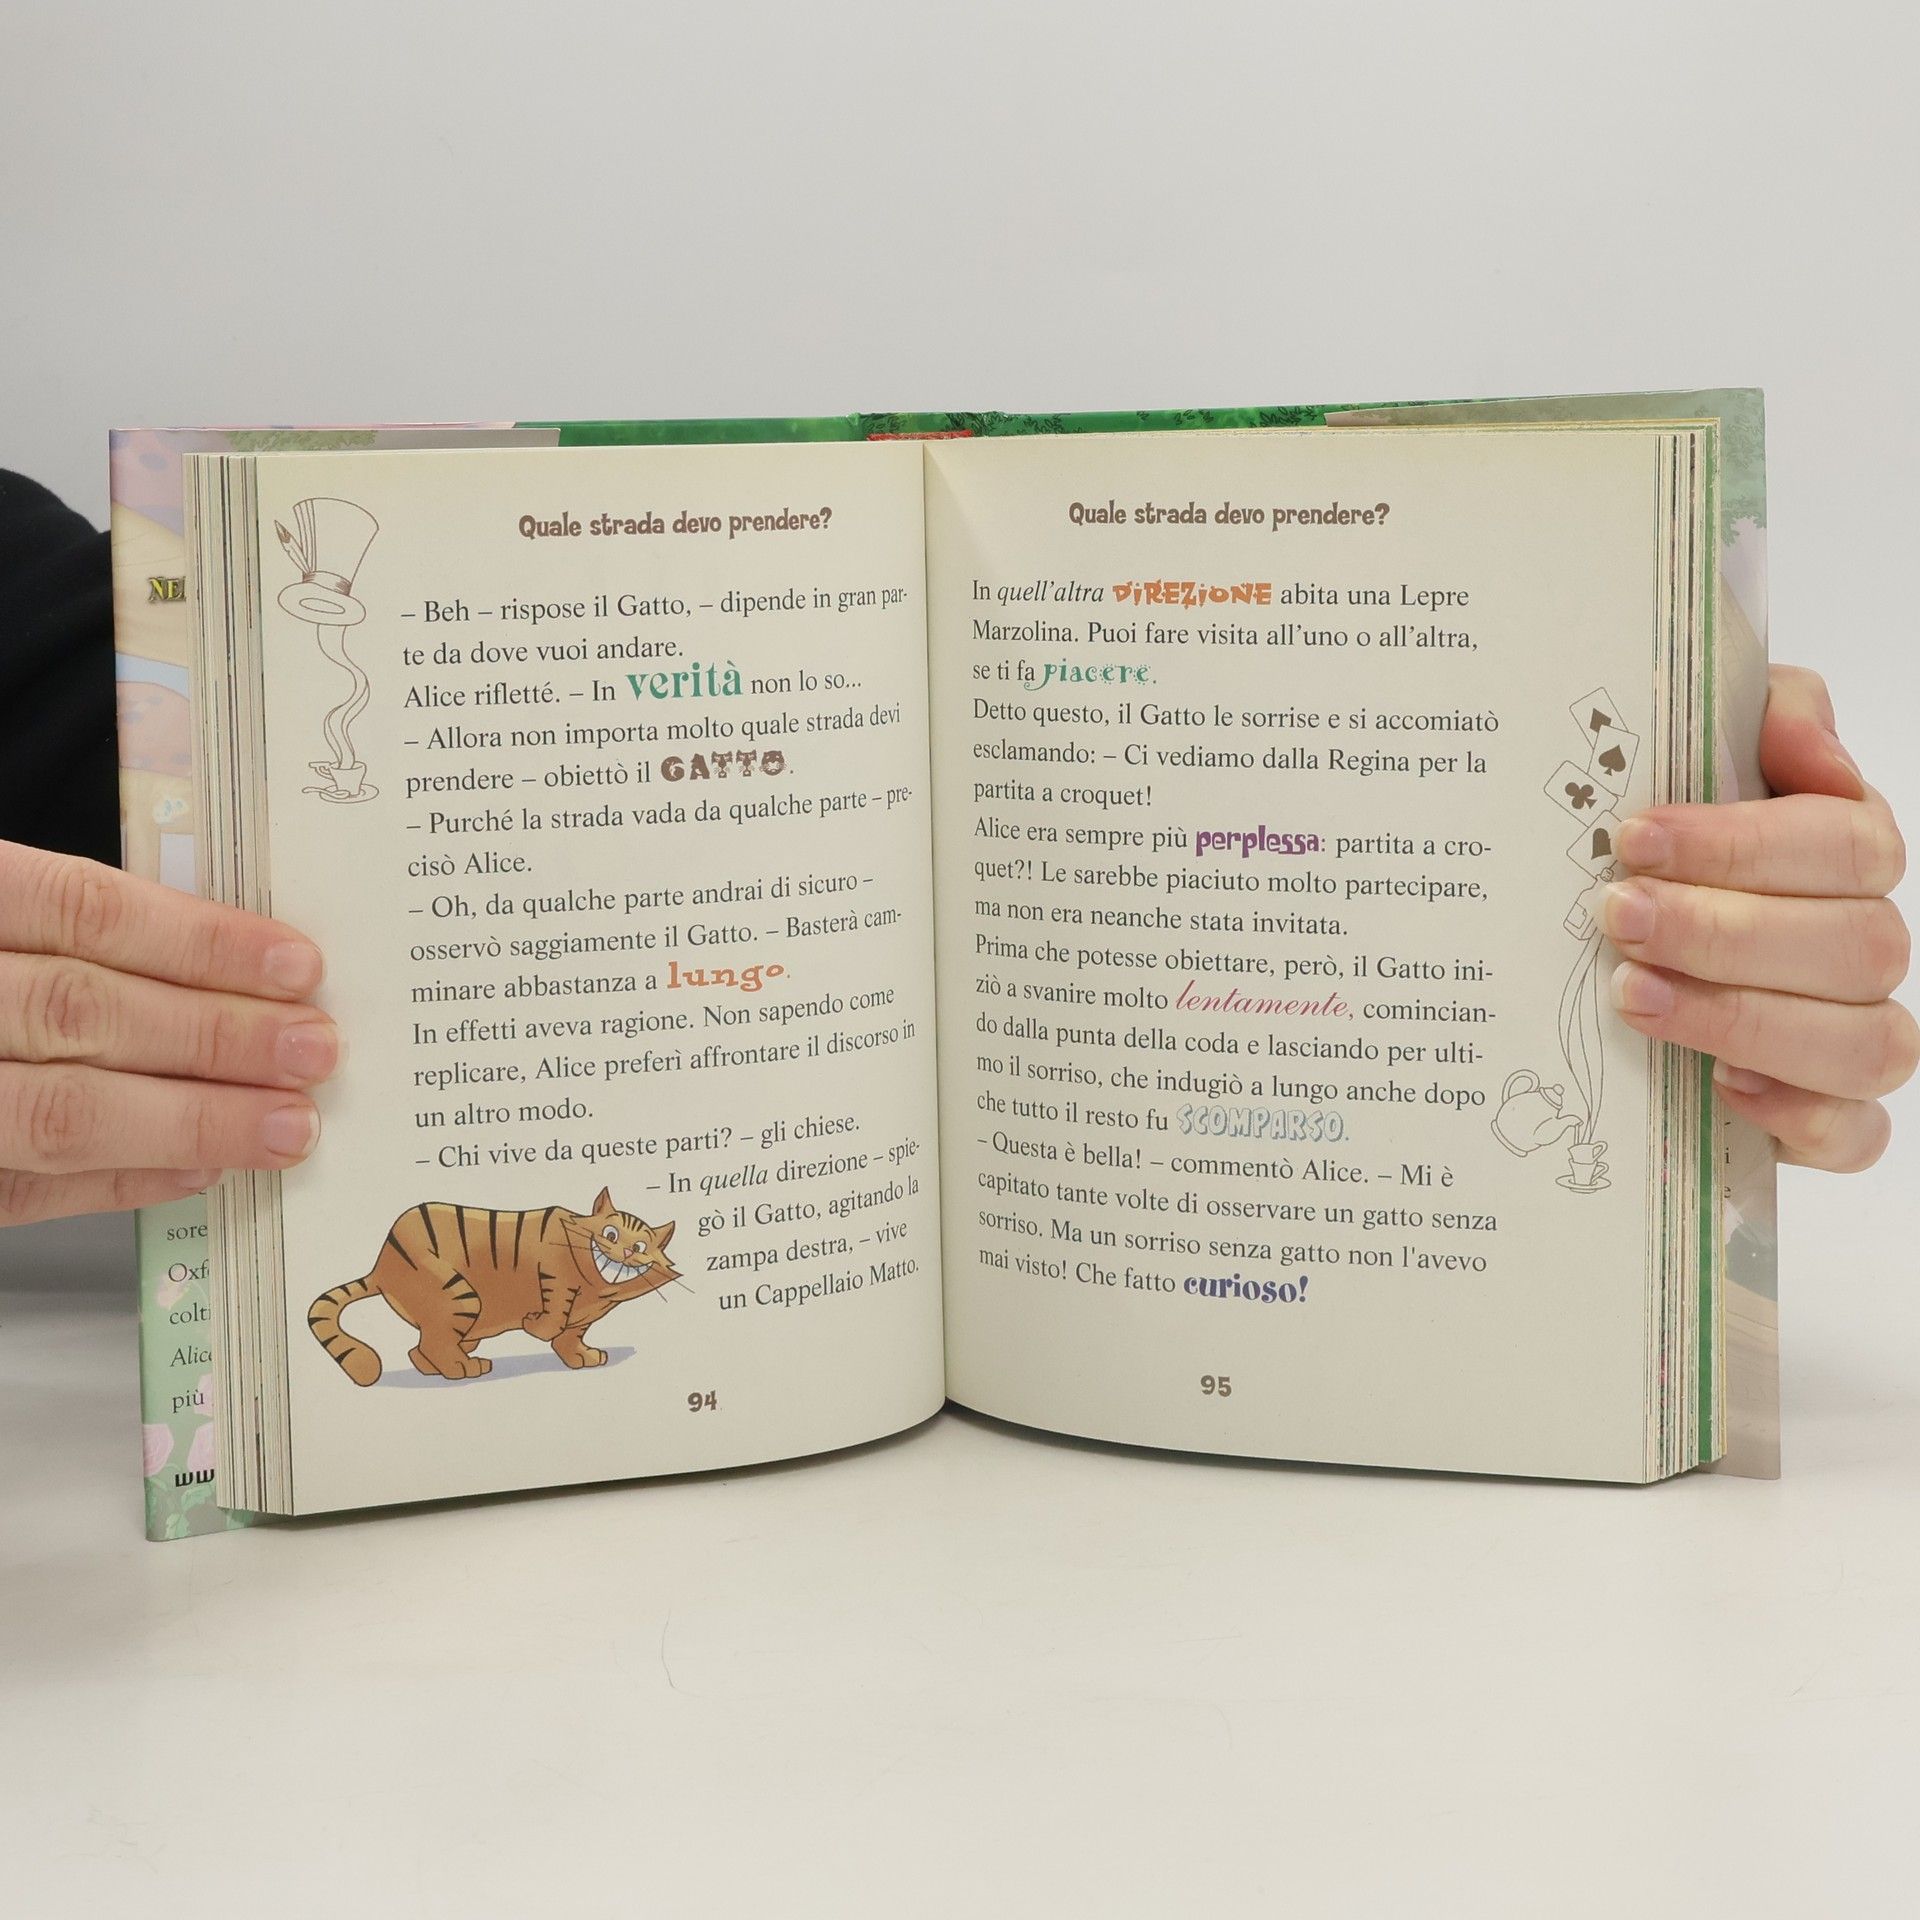 Quale strada devo prendere?
– Beh – rispose il Gatto, – dipende in gran par-
te da dove vuoi andare.
Alice rifletté. – In verità non lo so...
– Allora non importa molto quale strada devi
prendere – obiettò il GATTO.
– Purché la strada vada da qualche parte – pre-
cisò Alice.
– Oh, da qualche parte andrai di sicuro –
osservò saggiamente il Gatto. – Basterà cam-
minare abbastanza a lungo.
In effetti aveva ragione. Non sapendo come
replicare, Alice preferì affrontare il discorso in
un altro modo.
– Chi vive da queste parti? – gli chiese.
– In quella direzione – spie-
gò il Gatto, agitando la
zampa destra, – vive
un Cappellaio Matto.
94
Quale strada devo prendere?
In quell'altra DIREZIONE abita una Lepre
Marzolina. Puoi fare visita all'uno o all'altra,
se ti fa piacere.
Detto questo, il Gatto le sorrise e si accomiatò
esclamando: – Ci vediamo dalla Regina per la
partita a croquet!
Alice era sempre più perplessa: partita a cro-
quet?! Le sarebbe piaciuto molto partecipare,
ma non era neanche stata invitata.
Prima che potesse obiettare, però, il Gatto ini-
ziò a svanire molto lentamente, comincian-
do dalla punta della coda e lasciando per ulti-
mo il sorriso, che indugiò a lungo anche dopo
che tutto il resto fu SCOMPARSO.
– Questa è bella! – commentò Alice. – Mi è
capitato tante volte di osservare un gatto senza
sorriso. Ma un sorriso senza gatto non l'avevo
mai visto! Che fatto curioso!
95
Alice
più